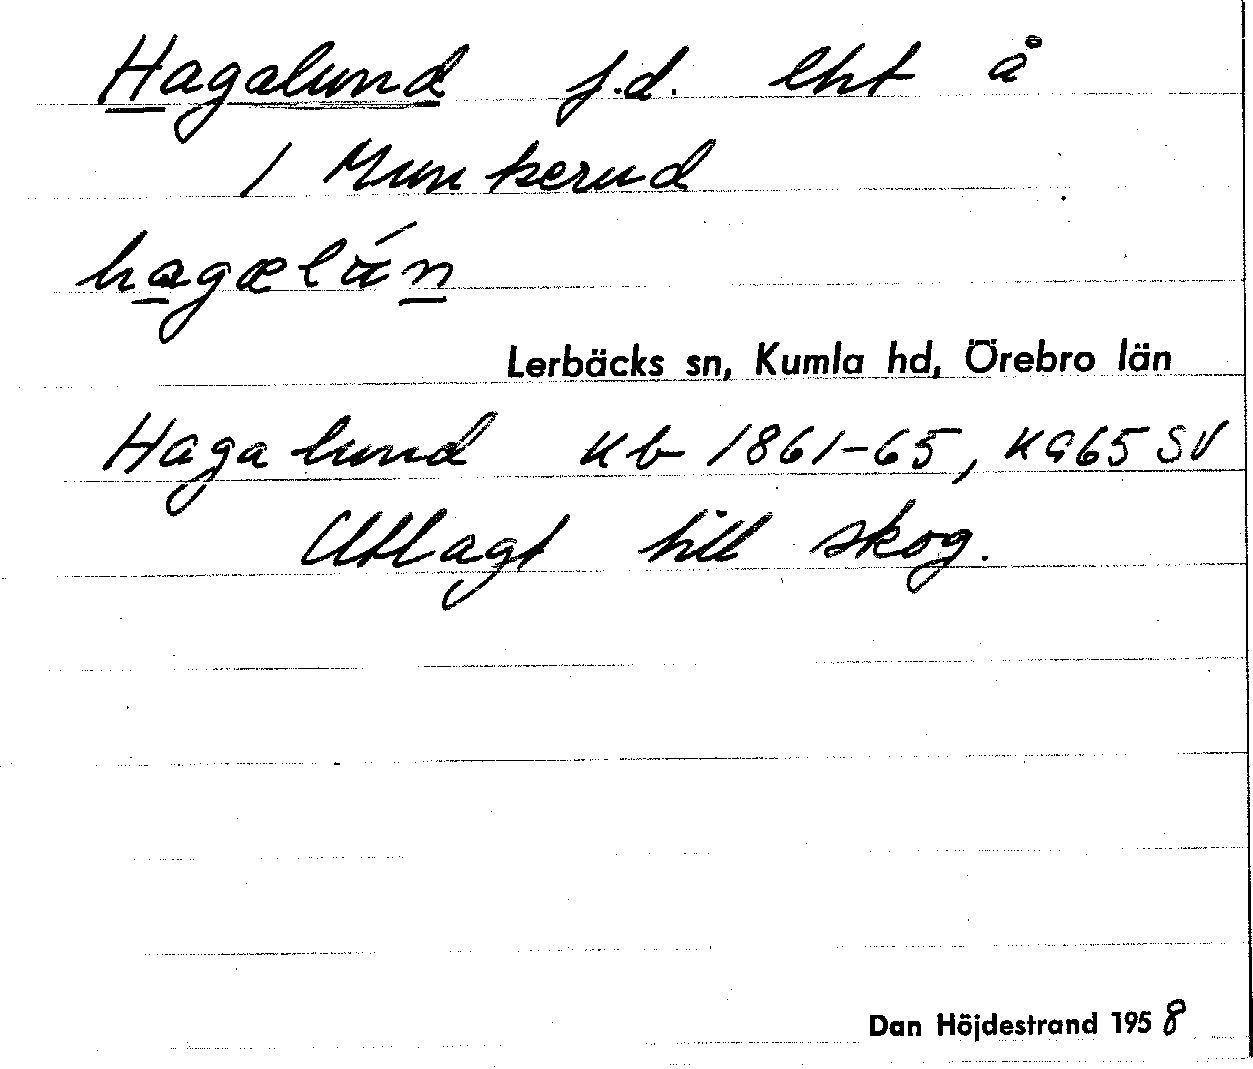 Hagalund f.d. lht å
1 Munkerud
hagælún
Lerbäcks sn, Kumla hd, Örebro län
Hagalund Kb 1861-65, K965 SV
Utlagt till skog.
Dan Höjdestrand 1958